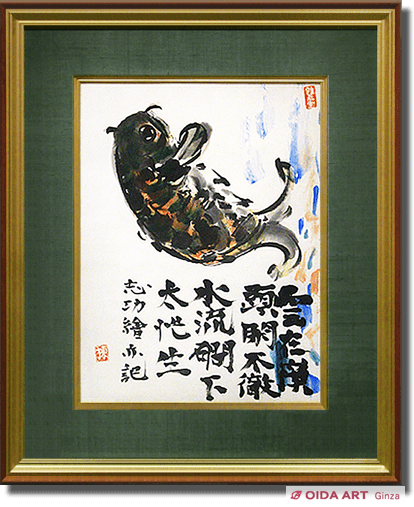 雲在嶺
頭閑不徹
水流磵下
太忙生
志功繪亦記
OIDA ART Ginza